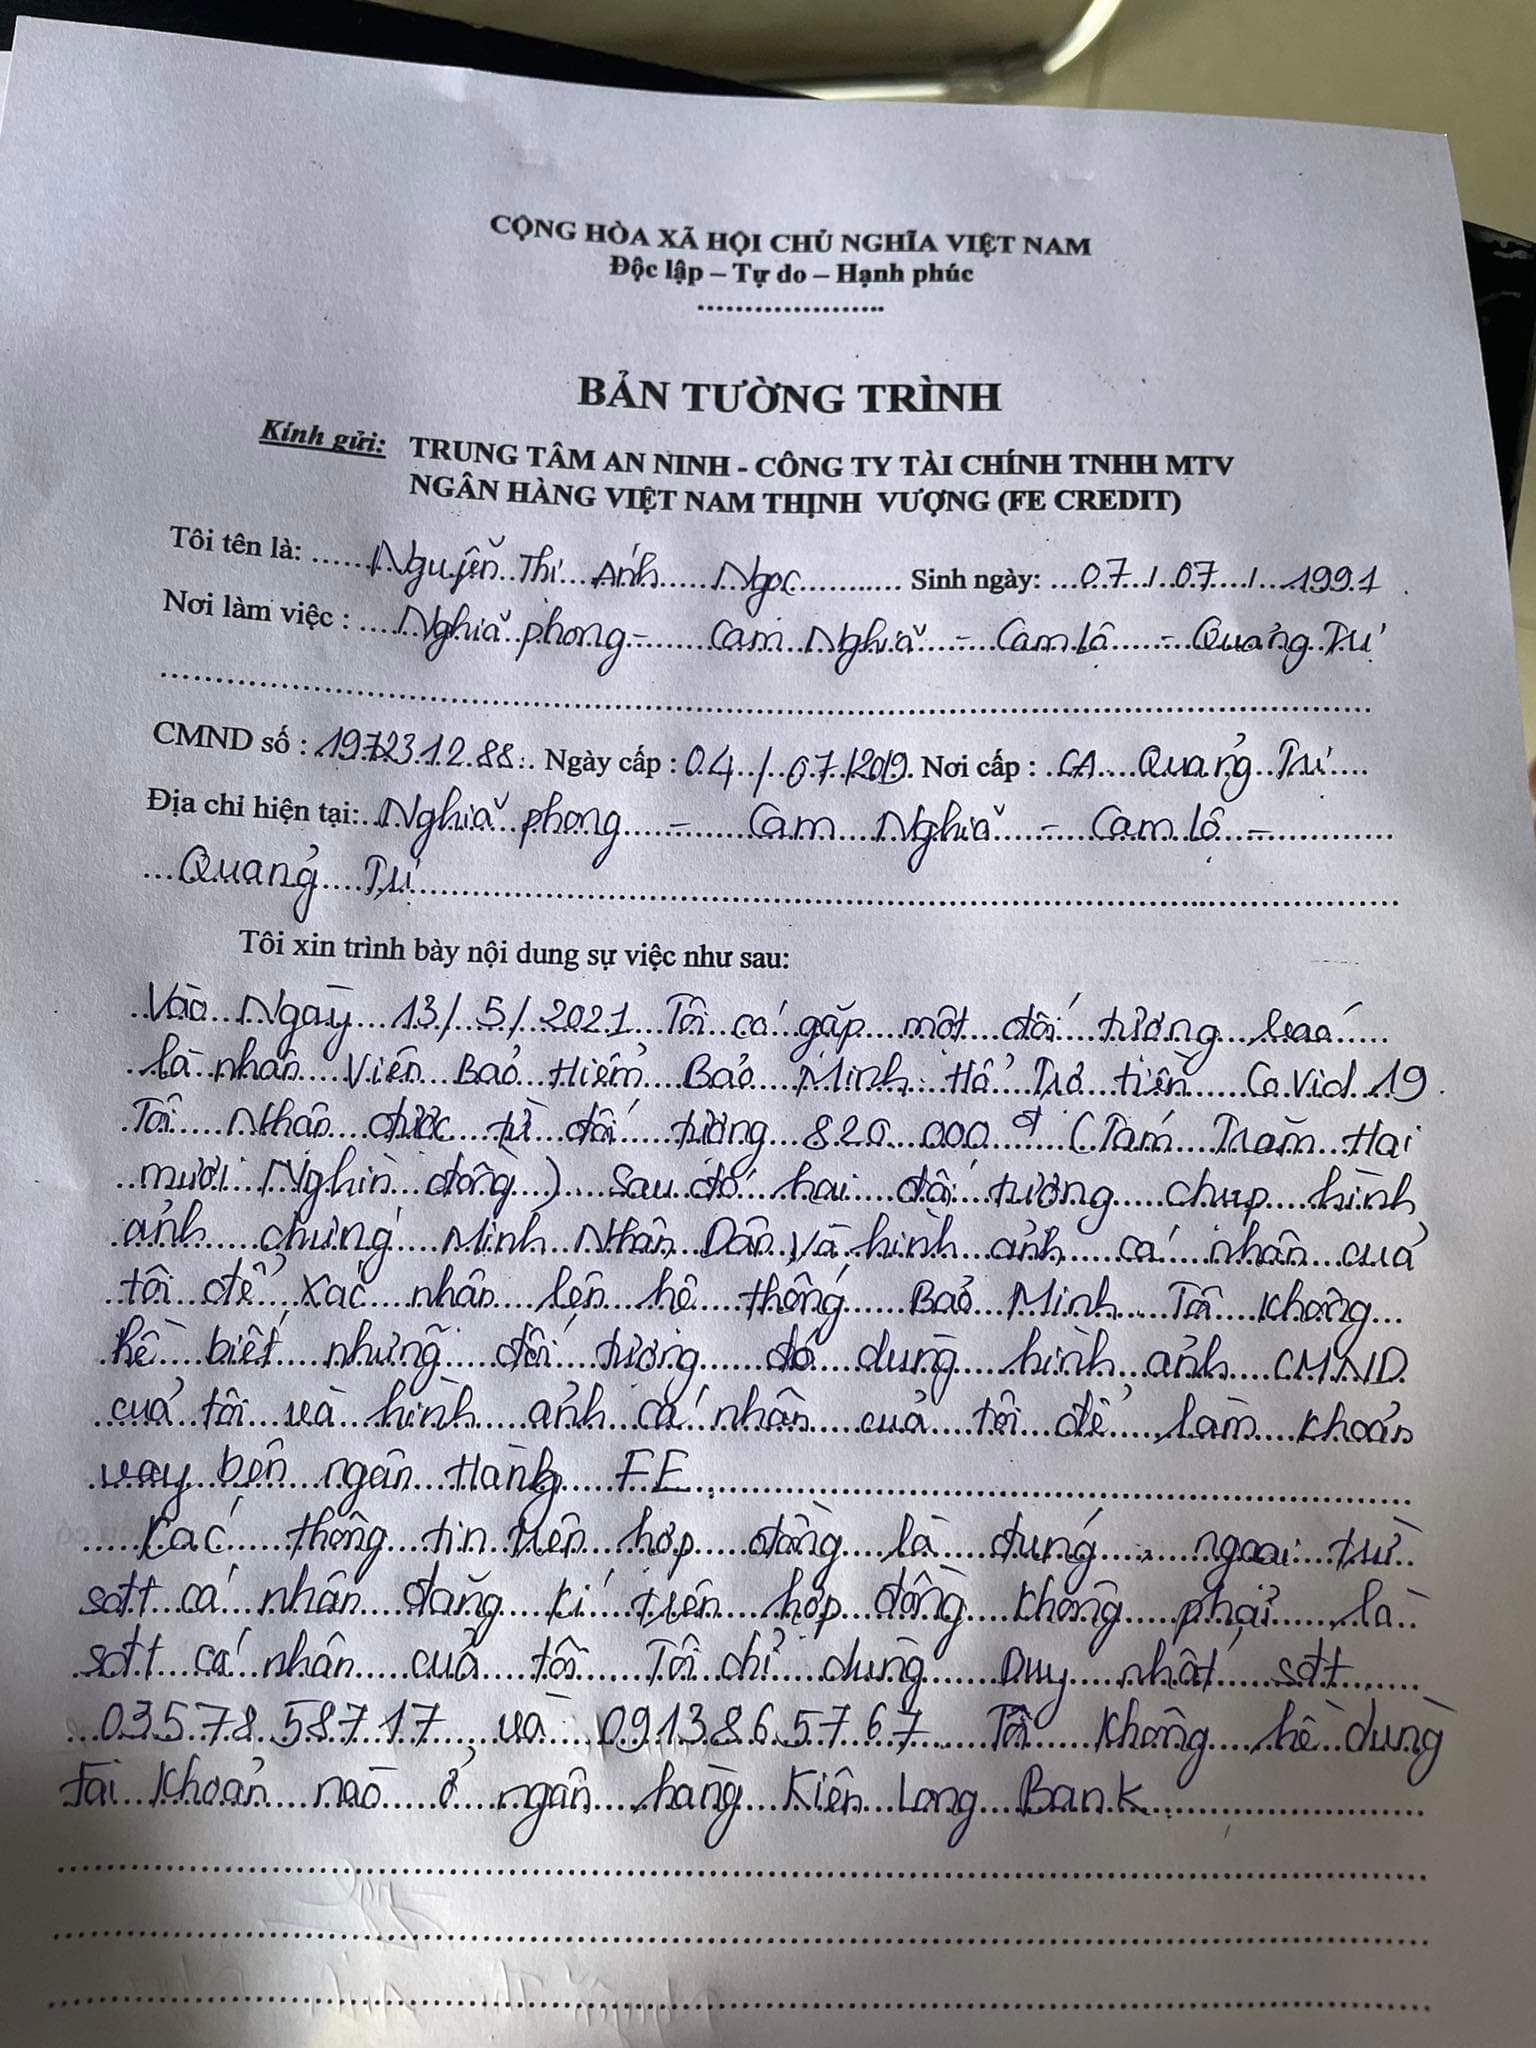 CỘNG HÒA XÃ HỘI CHỦ NGHĨA VIỆT NAM
Độc lập – Tự do – Hạnh phúc
BẢN TƯỜNG TRÌNH
Kính gửi: TRUNG TÂM AN NINH - CÔNG TY TÀI CHÍNH TNHH MTV
NGÂN HÀNG VIỆT NAM THỊNH VƯỢNG (FE CREDIT)
Tôi tên là: Nguyễn Thị Ánh Ngọc Sinh ngày: 07 / 07 / 1991
Nơi làm việc : Nghĩa phong - Cam Nghĩa - Cam Lộ - Quảng Trị
CMND số : 197231288 Ngày cấp : 04 / 07 / 2019 Nơi cấp : CA Quảng Trị
Địa chỉ hiện tại: Nghĩa phong - Cam Nghĩa - Cam lộ -
Quảng Trị
Tôi xin trình bày nội dung sự việc như sau:
Vào Ngày 13/5/2021 Tôi có gặp một đối tượng
là nhân Viên Bảo Hiểm Bảo Minh Hổ Trợ tiền CoVid 19
Tôi Nhận được từ đối tượng 820.000đ (Tám Trăm Hai
mươi Nghìn đồng) Sau đó hai đối tượng chụp hình
ảnh chứng Minh Nhân Dân Và hình ảnh cá nhân của
tôi để Xác nhận lên hệ thống Bảo Minh Tôi không
hề biết những đối tượng đó dùng hình ảnh CMND
của tôi và hình ảnh cá nhân của tôi để làm khoản
vay bên ngân Hàng FE
Các thông tin trên hợp đồng là đúng, ngoại trừ
sđt cá nhân đăng kí trên hợp đồng không phải là
sđt cá nhân của tôi Tôi chỉ dùng Duy nhất sđt
03578.58717 và 0913865767 Tôi không hề dùng
tài khoản nào ở ngân hàng Kiên Long Bank